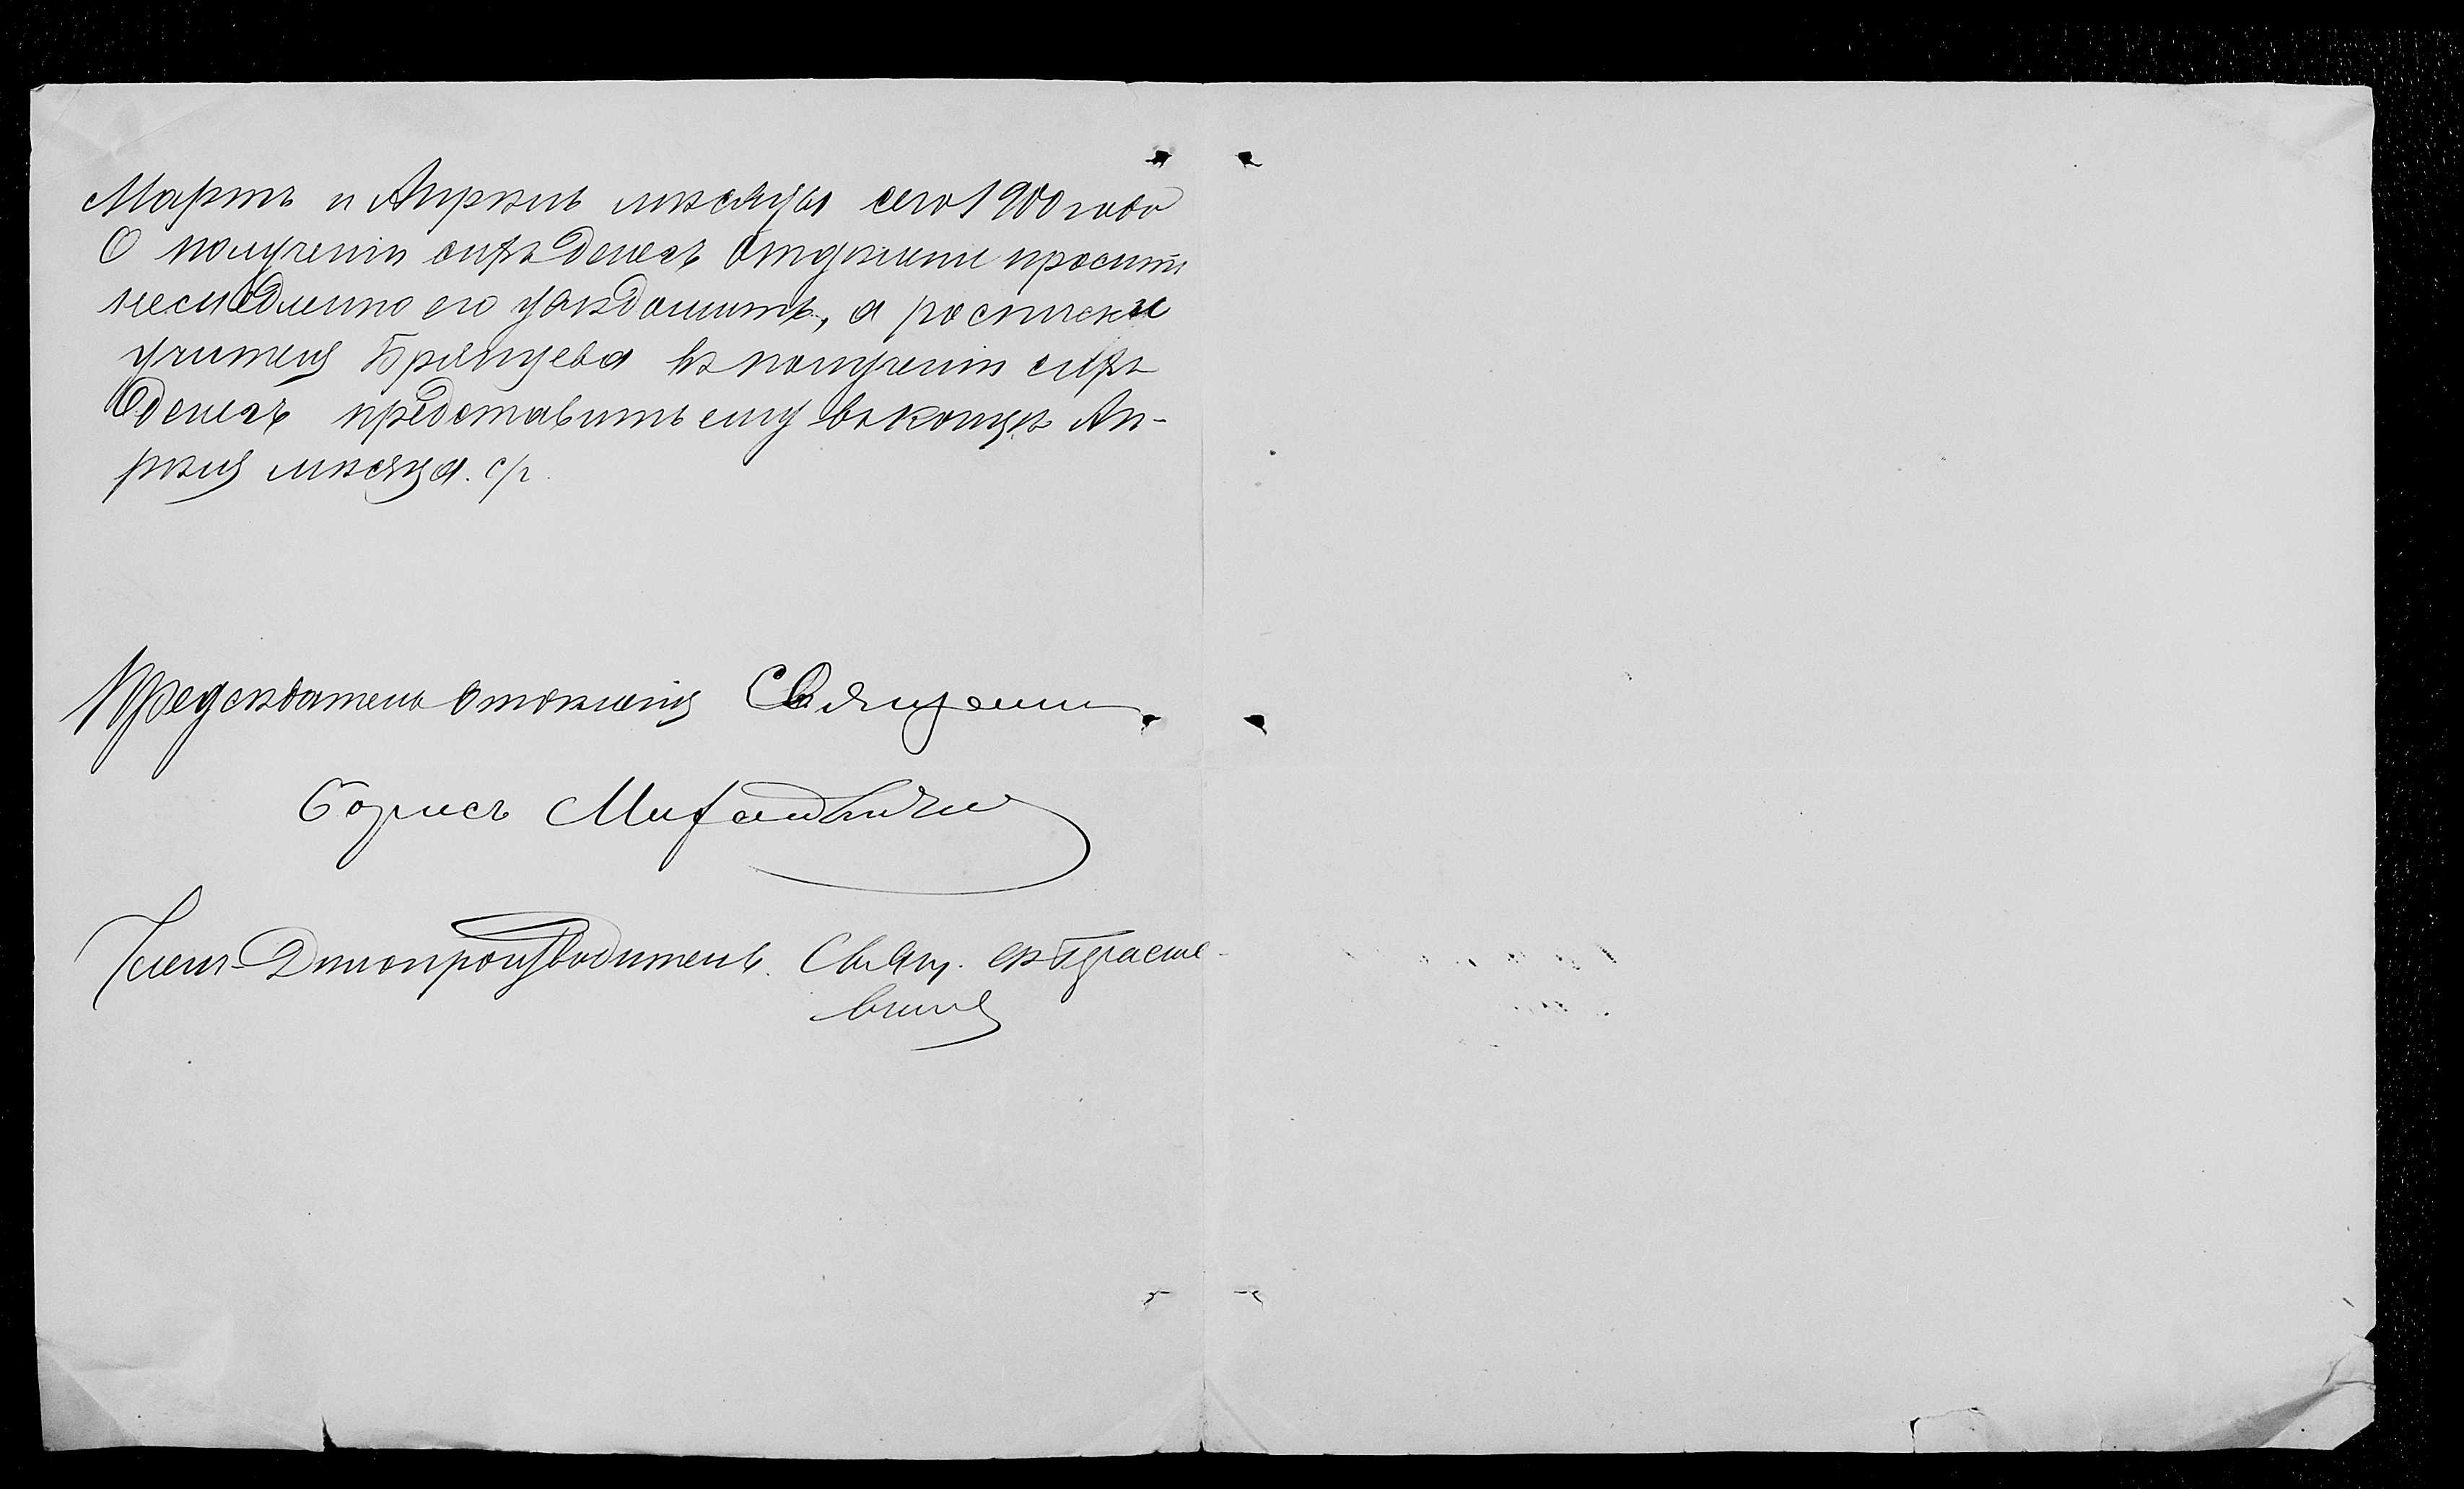 Мартъ и Апрѣль мѣсяцы сего 1900 года
О полученіи сихъ денегъ Отдѣленіе проситъ
немедленно его увѣдомить, а росписки
учителя Брянцева въ полученіи сихъ
денегъ представить ему въ концѣ Ап-
рѣля мѣсяца. с/г.
Предсѣдатель Отдѣленія Священни
Борисъ
Членъ-Дѣлопроизводитель. Свящ.